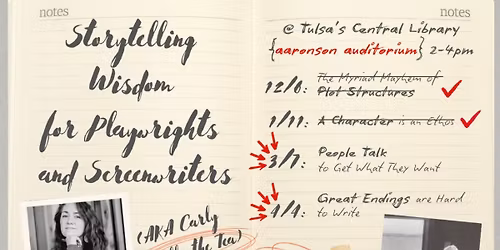 notes
Storytelling
Wisdom
for Playwrights
and Screenwriters
(AKA Carly
the Tea)
notes
@ Tulsa's Central Library
{aaronson auditorium} 2-4pm
12/6: The Myriad Mayhem of
Plot Structures
1/11: A Character is an Ethos
3/7: People Talk
to Get What They Want
4/4: Great Endings are Hard
to Write